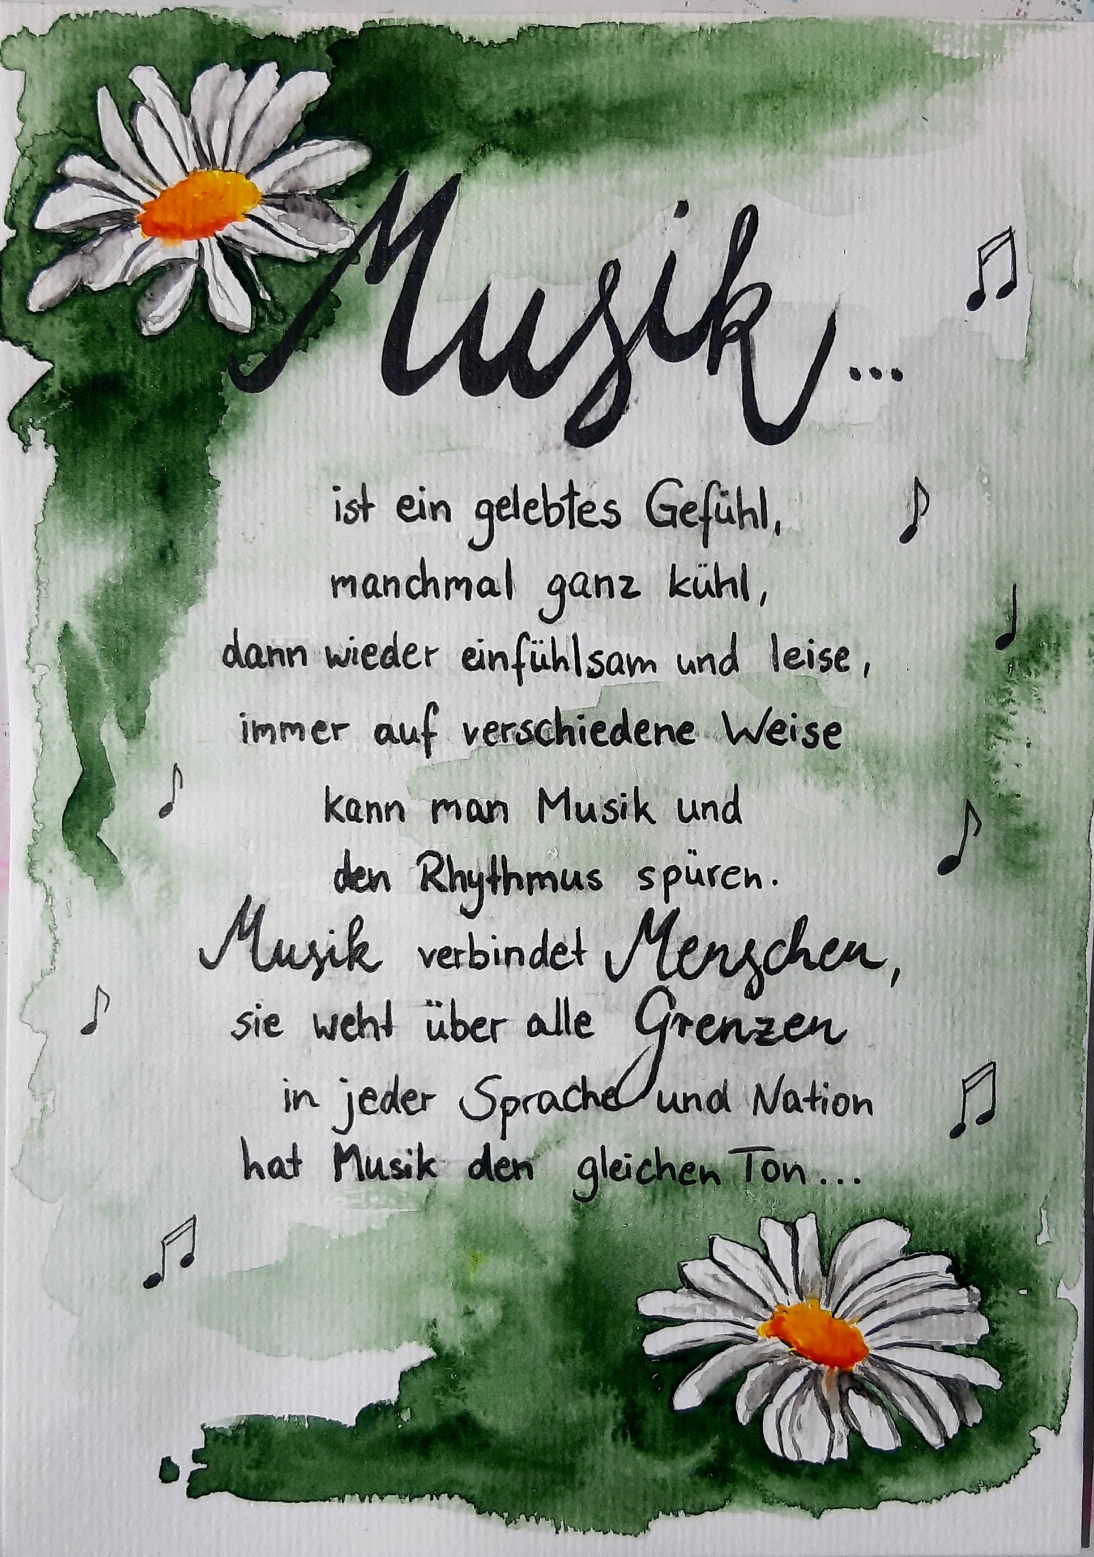 Musik...
ist ein gelebtes Gefühl,
manchmal ganz kühl,
dann wieder einfühlsam und leise,
immer auf verschiedene Weise
kann man Musik und
den Rhythmus spüren.
Musik verbindet Menschen,
sie weht über alle Grenzen
in jeder Sprache und Nation
hat Musik den gleichen Ton...